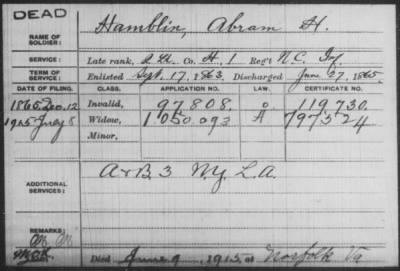 DEAD
NAME OF SOLDIER: Hamblin, Abram H.
SERVICE: Late rank, 2 Lt. Co. H, 1 Reg't N.C. Inf.
TERM OF SERVICE: Enlisted Sept. 17, 1863, Discharged June 27, 1865.
DATE OF FILING. CLASS. APPLICATION NO. LAW. CERTIFICATE NO.
1865 Dec. 12 Invalid, 97808. o 119730.
1915 July 8 Widow, 1050.093 A 797524
Minor,
ADDITIONAL SERVICES: A & B. 3 N.Y. L.A.
REMARKS:
Died June 9, 1915, at Norfolk Va